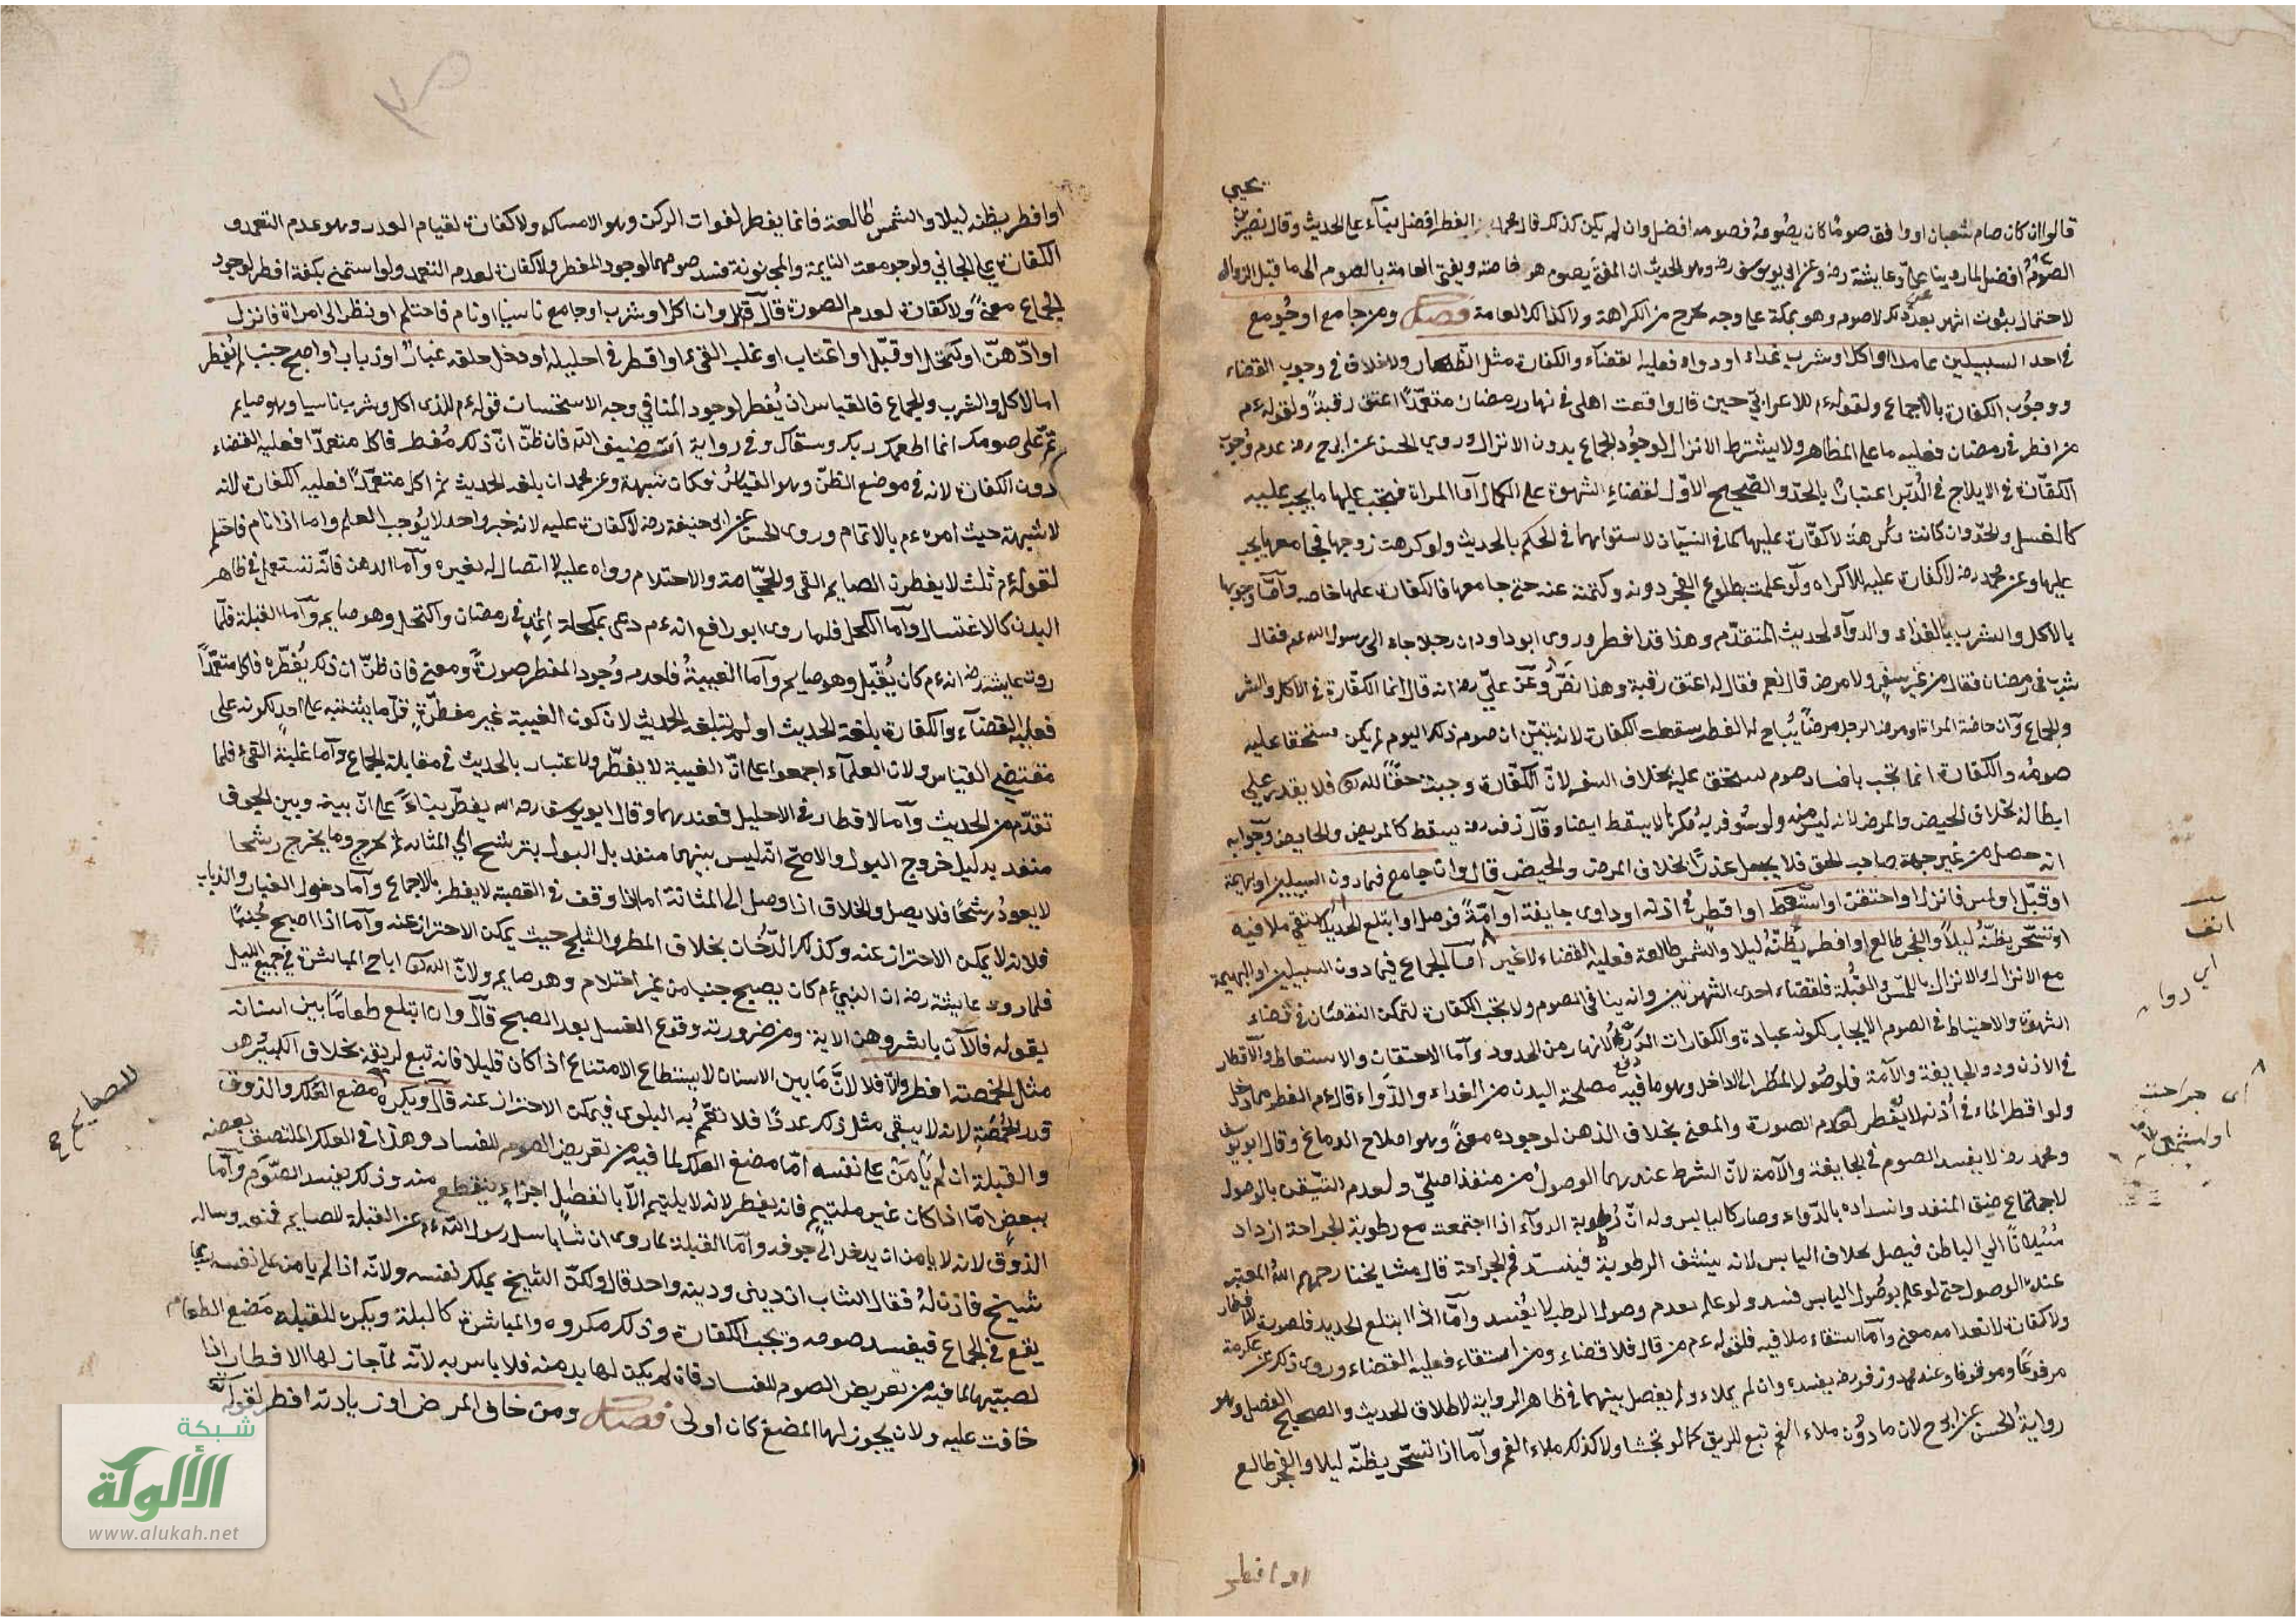 يحيى
قالوا ان كان صام شعبان او وافق صوما كان يصومه فصومه افضل وان لم يكن كذلك قال محمد بن الفطر افضل بناء على الحديث وقال نصير بن
الصوم افضل لما روينا عن علي وعايشة رض وعن ابي يوسف رض وهو الحديث ان المفتي يصوم هو خاصته ويفتي العامة بالصوم الى ما قبل الزوال
لاحتمال ثبوت الشهر بعد ذلك لا صوم وهو يمكنه على وجه يخرج من الكراهة ولا كذلك العامة فصل ومن جامع او جومع
في احد السبيلين عامدا او اكل او شرب غذاء او دواء فعليه القضاء والكفارة مثل الظهار ولا خلاف في وجوب القضاء
ووجوب الكفارة بالاجماع ولقوله ءم للاعرابي حين قال واقعت اهلي في نهار رمضان متعمدا اعتق رقبة ولقوله ءم
من افطر في رمضان فعليه ما على المظاهر ولا يشترط الانزال لوجود الجماع بدون الانزال وروى الحسن عن ابي ح رض عدم وجوب
الكفارة في الايلاج في الدبر اعتبارا بالحد والصحيح الاول لقضاء الشهوة على الكمال اما المراة فيجب عليها ما يجب عليه
كالغسل والحد وان كانت مكرهة لا كفارة عليها كما في النسيان لاستوائهما في الحكم بالحديث ولو كرهت زوجها فجامعها يجب
عليها وعن محمد رض لا كفارة عليه للاكراه ولو علمت بطلوع الفجر دونه وكتمته عنه حتى جامعها فالكفارة عليها خاصه واما وجوبها
بالاكل والشرب بالغذاء والدواء لحديث المتقدم وهذا قد افطر وروى ابو داود ان رجلا جاء الى رسول الله عم فقال
شرب في رمضان فقال من غير سفر ولا مرض قال نعم فقال له اعتق رقبة وهذا نص وعن علي رض انه قال انما الكفارة في الاكل والشرب
والجماع وان حاضت المراة او مرض الرجل مرضا يباح له الفطر سقطت الكفارة لانه تبين ان صومه ذلك اليوم لم يكن مستحقا عليه
صومه والكفارة انما تجب بافساد صوم مستحق عليه بخلاف السفر لان الكفارة وجبت حقا لله تع فلا يقدر على
ابطاله بخلاف الحيض والمرض لانه ليس منه ولو سوفر به مكرها لا يسقط ايضا وقال زفر رض يسقط كالمريض والحايض وجوابه
انه حصل من غير جهة صاحب الحق فلا يجعل عذرا بخلاف المرض والحيض قال وان جامع فيما دون السبيلين او بهيمة
او قبل او لمس فانزل او احتقن او استعط او اقطر في اذنه او داوى جايفة او آمة فوصل او ابتلع الحديد او استقى ملا فيه
او تسحر يظنه ليلا والفجر طالع او افطر يظنه ليلا والشمس طالعة فعليه القضاء لا غير اما الجماع فيما دون السبيلين او البهيمة
مع الانزال والانزال باللمس والقبلة فلقضاء احدى الشهوتين وانه ينافي الصوم ولا تجب الكفارة لتمكن النقصان في قضاء
الشهوة والاحتياط في الصوم الايجاب لكونه عبادة والكفارات الدرء لانها من الحدود واما الاحتقان والاستعاط والاقطار
في الاذن ودو الجايفة والآمة فلوصول المفطر الى الداخل وهو ما فيه مصلحة البدن من الغذاء والدواء قال ءم الفطر مما دخل
ولو اقطر الماء في اذنه لا يفطر لعدم الصورة والمعنى بخلاف الدهن لوجوده معنى وهو اصلاح الدماغ وقال ابو يوسف
ومحمد رض لا يفسد الصوم في الجايفة والآمة لان الشرط عندهما الوصول من منفذ اصلي ولعدم التيقن بالوصول
لاجتماع ضيق المنفذ وانسداده بالدواء وصار كاليابس وله ان رطوبة الدواء اذا اجتمعت مع رطوبة الجراحة ازداد
سيلانا الى الباطن فيصل بخلاف اليابس لانه ينشف الرطوبة فينسد فم الجراحة قال مشايخنا رحمهم الله المعتبر
عنده الوصول حتى لو علم بوصول اليابس فسد ولو علم بعدم وصول الرطب لا يفسد واما اذا ابتلع الحديد فلصورة الافطار
ولا كفارة لانعدامه معنى واما استقاء ملا فيه فلقوله ءم من قال فلا قضاء ومن استقاء فعليه القضاء وروى ذلك عن عكرمة
مرفوعا وموقوفا وعند محمد وزفر رض يفسده وان لم يملاء ولم يفصل بينهما في ظاهر الرواية لاطلاق الحديث والصحيح الفصل وهو
رواية الحسن عن ابي ح لان ما دون ملاء الفم تبع للريق كما لو تجشا ولا كذلك ملاء الفم واما اذا تسحر يظنه ليلا والفجر طالع
او افطر
انف
اي دواه
اى جراحت
او افطر يظنه ليلا والشمس طالعة فانما يفطر لفوات الركن وهو الامساك ولا كفارة لقيام العذر وهو عدم التعمد و
الكفارة على الجاني ولو جومعت النايمة والمجنونة فسد صومهما لوجود المفطر ولا كفارة لعدم التعمد ولو استمنى بكفه افطر لوجود
الجماع معنى ولا كفارة لعدم الصورة قال وان اكل او شرب او جامع ناسيا او نام فاحتلم او نظر الى امراة فانزل
او ادهن او اكتحل او قبل او اغتاب او غلب القى او اقطر في احليله او دخل حلقه غبار او ذباب او اصبح جنبا لم يفطر
اما الاكل والشرب والجماع فالقياس ان يفطر لوجود المنافي وجه الاستحسان قوله ءم للذى اكل وشرب ناسيا وهو صايم
تم على صومك انما اطعمك ربك وسقاك وفي رواية انت ضيف الله فان ظن ان ذلك مفطر فاكل متعمدا فعليه القضاء
دون الكفارة لانه في موضع الظن وهو القياس فكان شبهة وعن محمد ان بلغه الحديث ثم اكل متعمدا فعليه الكفارة لانه
لا شبهة حيث امره ءم بالاتمام وروى الحسن عن ابي حنيفة رض لا كفارة عليه لانه خبر واحد لا يوجب العلم واما اذا نام فاحتلم
لقوله ءم ثلث لا يفطرن الصايم القى والحجامة والاحتلام رواه عليه لا اتصال له بغيره واما الدهن فانه تستعمل في ظاهر
البدن كالاغتسال واما الكحل فلما روى ابو رافع انه ءم دعى بمكحلة اثمد في رمضان واكتحل وهو صايم واما القبلة فلما
روت عايشة رض انه ءم كان يقبل وهو صايم واما الغيبة فلعدم وجود المفطر صورة ومعنى فان ظن ان ذلك يفطره فاكل متعمدا
فعليه القضاء والكفارة بلغه الحديث او لم يبلغه الحديث لان كون الغيبة غير مفطرة قل ما يشتبه على احد لكونه على
مقتضى القياس ولان العلماء اجمعوا على ان الغيبة لا يفطر ولا اعتبار بالحديث في مقابلة الجماع واما غلبة القى فلما
تقدم من الحديث واما الاقطار في الاحليل فعندهما وقال ابو يوسف رحه الله يفطر بناء على ان بينه وبين الجوف
منفذ بدليل خروج البول والاصح انه ليس بينهما منفذ بل البول يترشح الى المثانة ثم يخرج وما يخرج رشحا
لا يعود رشحا فلا يصل والخلاف اذا وصل الى المثانة اما اذا وقف في القصبة لا يفطر بالاجماع واما دخول الغبار والذباب
فلانه لا يمكن الاحتراز عنه وكذلك الدخان بخلاف المطر والثلج حيث يمكن الاحتراز عنه واما اذا اصبح جنبا
فلما روى عايشة رض ان النبي ءم كان يصبح جنبا من غير احتلام وهو صايم ولان الله تع اباح المباشرة في جميع الليل
بقوله فالآن باشروهن الاية ومن ضرورته وقوع الغسل بعد الصبح قال وان ابتلع طعاما بين اسنانه
مثل الحمصة افطر والا فلا لان ما بين الاسنان لا يستطاع الامتناع اذا كان قليلا فانه تبع لريقه بخلاف الكثير هو
قدر الحمصة لانه لا يبقى مثل ذلك عددا فلا تعم به البلوى فيمكن الاحتراز عنه قال ويكره مضغ العلك والذوق
والقبلة ان لم يامن على نفسه اما مضغ العلك لما فيه من تعريض الصوم للفساد وهذا في العلك الملتصق بعضه
ببعض اما اذا كان غير ملتيم فانه يفطر لانه لا يلتيم الا بانفصال اجزاء ينقطع منه وذلك يفسد الصوم واما
الذوق لانه لا يامن ان يدخل الى جوفه واما القبلة لما روى ان شابا سال رسول الله ءم عن القبلة للصايم فمنعه وساله
شيخ فاذن له فقال الشاب ان ديني ودينه واحد قال ولكن الشيخ يملك نفسه ولانه اذا لم يامن على نفسه ربما
يقع في الجماع فيفسد صومه ويجب الكفارة وذلك مكروه والمباشرة كالقبلة ويكره للمراة مضغ الطعام
لصبيها لما فيه من تعريض الصوم للفساد فان لم يكن لها بد منه فلا باس به لانه لما جاز لها الافطار اذا
خافت عليه ولان يجوز لها المضغ كان اولى فصل ومن خاف المرض او زيادته افطر لقوله تع
للصايم
شبكة
الألوكة
www.alukah.net